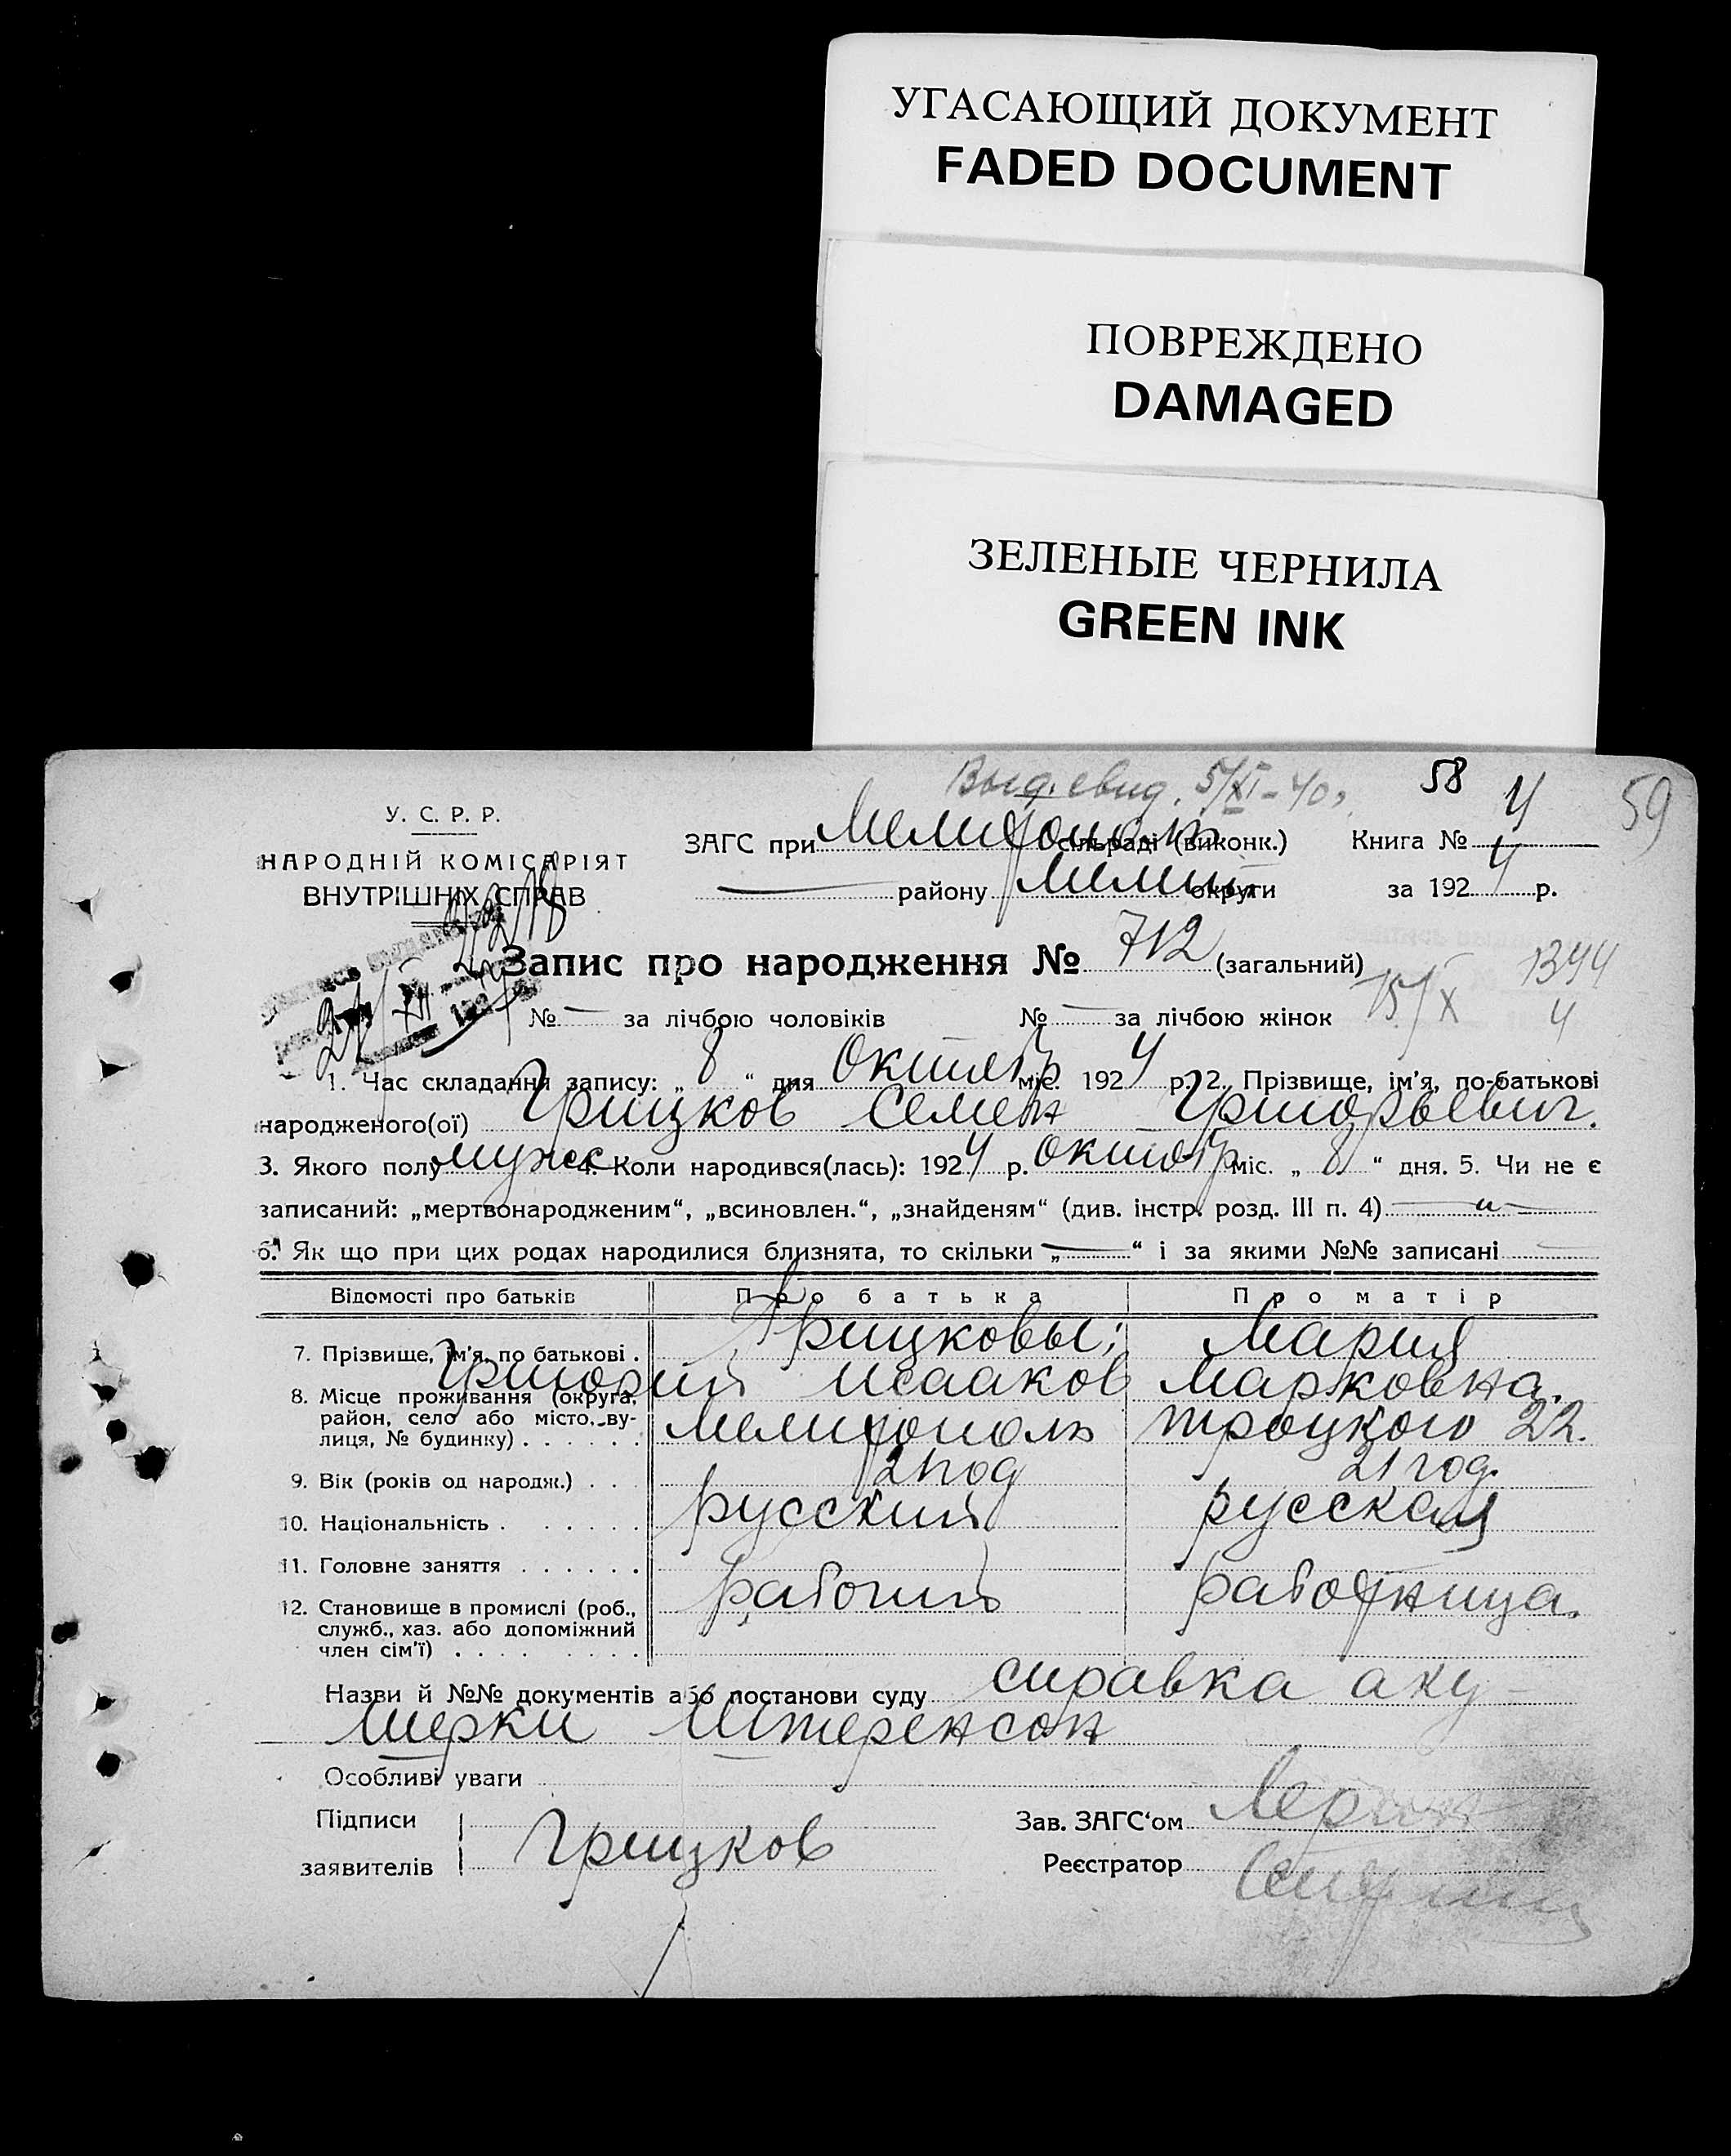 УГАСАЮЩИЙ ДОКУМЕНТ
FADED DOCUMENT
ПОВРЕЖДЕНО
DAMAGED
ЗЕЛЕНЫЕ ЧЕРНИЛА
GREEN INK
Выд. свид. 5/XI-40г 58 59
У. С. Р. Р.
НАРОДНІЙ КОМІСАРІЯТ
ВНУТРІШНІХ СПРАВ
ЗАГС при Мелитополь сільраді (виконк.) Книга № 4
— району Мелит округи за 1924 р.
Запис про народження № 712 (загальний)
15/X 1344
4
№ — за лічбою чоловіків № — за лічбою жінок
1. Час складання запису: „ 8 “ дня Октябр міс. 1924 р. 2. Прізвище, ім'я, по-батькові
народженого(ої) Грицков Семен Григорьевич.
3. Якого полу мужс 4. Коли народився(лась): 1924 р. октябр міс. „ 8 “ дня. 5. Чи не є
записаний: „мертвонародженим“, „всиновлен.“, „знайденям“ (див. інстр. розд. III п. 4)
6. Як що при цих родах народилися близнята, то скільки „ — “ і за якими №№ записані —
Відомості про батьків Про батька Про матір
7. Прізвище, ім'я, по батькові . Грицковы; Мария
Григорий Исааков Марковна.
8. Місце проживання (округа, район, село або місто, ву-
лиця, № будинку) . . . . . . Мелитополь Троцкого 22.
9. Вік (років од народж.) . . . 21 год 21 год.
10. Національність . . . . . . русский русская
11. Головне заняття . . . . . .
12. Становище в промислі (роб., рабочий работница.
служб., хаз. або допоміжний
член сім'ї) . . . . . . . .
Назви й №№ документів або постанови суду справка аку-
шерки Штеренсон
Особливі уваги
Підписи Зав. ЗАГС'ом
заявителів Грицков Реєстратор